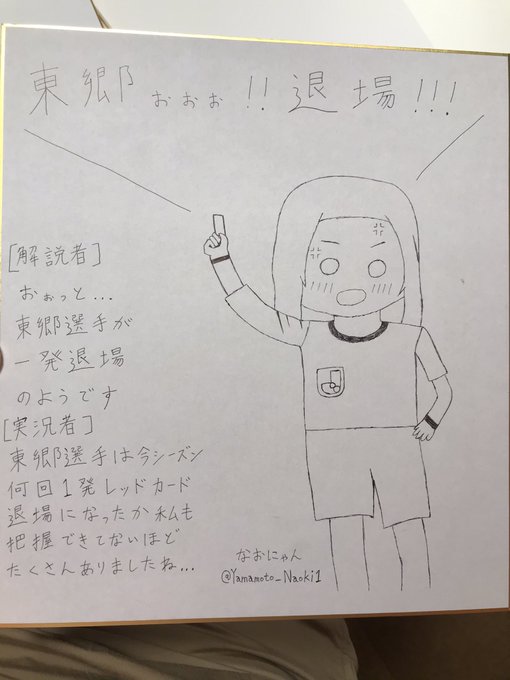 東郷ぉぉぉ!!退場!!!
[解説者]
おぉっと...
東郷選手が
一発退場
のようです
[実況者]
東郷選手は今シーズン
何回1発レッドカード
退場になったか私も
把握できてないほど
たくさんありましたね...
なおにゃん
@Yamamoto_Naoki1